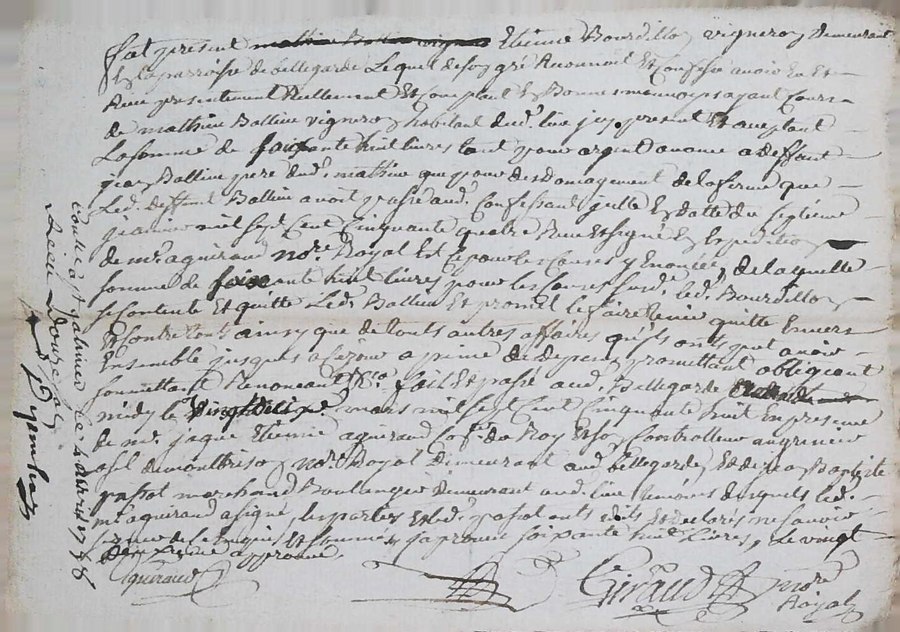 fut present Etienne Bourdillon vigneron demeurant
En la parroisse de bellegarde Lequel de son gré Reconnoit Et Confesse avoir Eu Et
Receu presentement Reellement Et Comptant En Bonnes monnoyes ayant Cours
de mathieu Ballieu vigneron habitant dud. lieu jcy present Et aceptant
La somme de soixante huit livres tant pour argent avancé a deffunt
jean Ballieu pere dud. mathieu que pour desdomagement de la ferme que
Led. deffunt Ballieu avoit passé aud. Confessant jcelle En datte du septieme
janvier mil sept Cent Cinquante quatre Receu Et signé En Expedition
de me. aguiraud nore. Royal Et Ce pour les Causes y Enoncées, de laquelle
somme de soixante huit livres pour les Causes susd. led. Bourdillon
se Contente Et quitte Led. Ballieu Et promet le faire tenir quitte Envers
Et Contre tous ainsy que de touts autres affaires qu'ils ont pu avoir
Ensemble jusques a Ce jour a peine de depens, promettant obligeant
soumettant Renonceant fait Et passé aud. Bellegarde
midy le vingt mars mil sept Cent Cinquante huit En presence
de me. jaque Etienne aguiraud Coner. du Roy Et son Controlleur au grenier
a sel de montbrison nore. Royal demeurant aud. bellegarde Et de jean Baptiste
passot marchand Boulanger demeurant aud. lieu temoins desquels led.
me. aguiraud a signé, les parties Et led. passot onts dits Et declarés ne savoir
signer de Ce Enquis Et sommés, soixante huit Livres, Le vingt
approuvé
aguiraud
Giraud nore
Royal
Controllé a St galmier Le 4 avril 1758
Reçu Douze sols